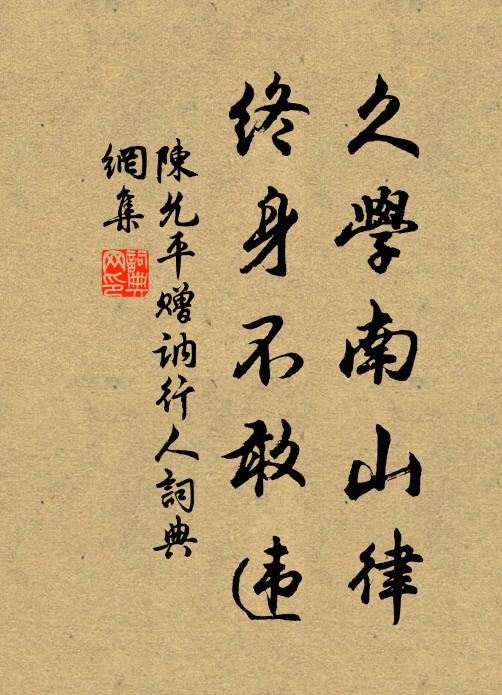 久學南山律
终身不敢违
陳允平赠訥行人詞典
網集
詞典
网印